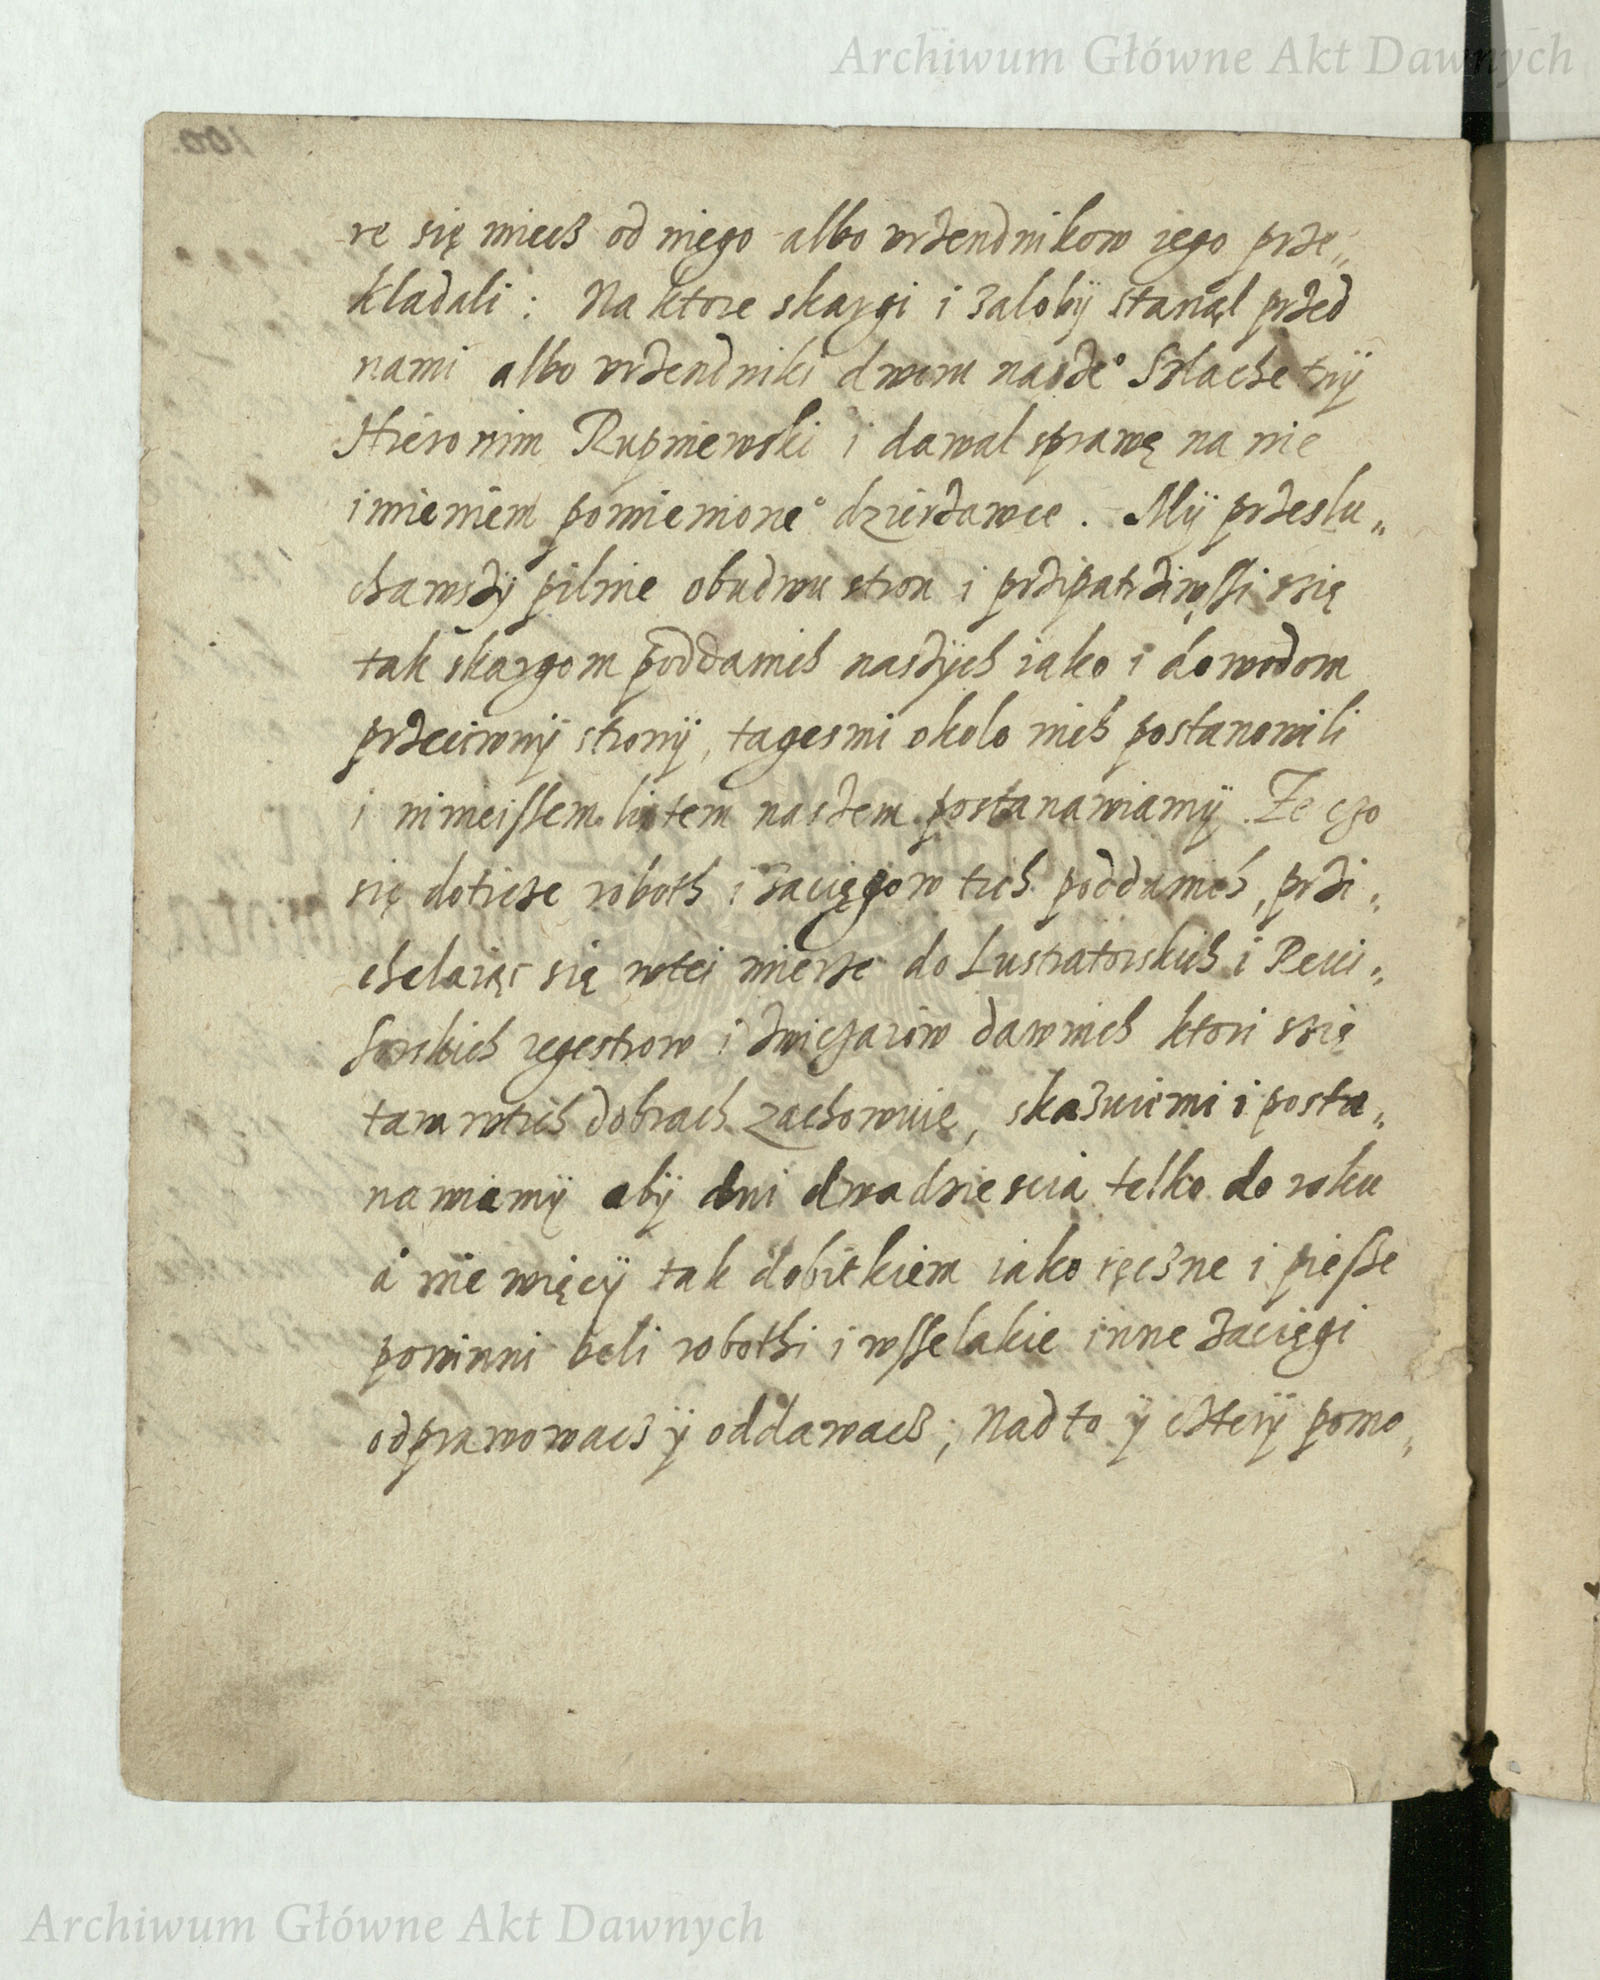 Archiwum Główne Akt Dawnych
100.
re się miecz od niego albo vrzendnikow iego prze„
kladali : Na ktore skargi i zaloby stanął przed
nami albo vrzendniki dworu nasze° Szlachetny
Hieronim Rupniewski i dawal sprawę na nie
imieniem pomienione° dzierzawce . My przeslu„
chawszy pilnie obudwu stron i przipatziwssi ssię
tak skargom poddanich naszych iako i dowodom
przeciwny strony, tagesmi okolo nich postanowili
i ninieissem listem naszem postanawiamy. Ze czo
się doticze roboth i zaciągow tich poddanich, przi„
chelaiąc się wtei mierze do Lustratorskich i Revi„
sorskich regestrow i zwiczaiow dawnich ktori ssię
tam wtich dobrach zachowuie, skazuiemi i posta„
nawiamy aby dni dwadziescia telko do roku
a nie więcy tak dobitkiem iako ręczne i piesse
powinni beli robothi i wsselakie inne zaciągi
odprawowacz y oddawacz; Nad to y cztery pomo„
Archiwum Główne Akt Dawnych